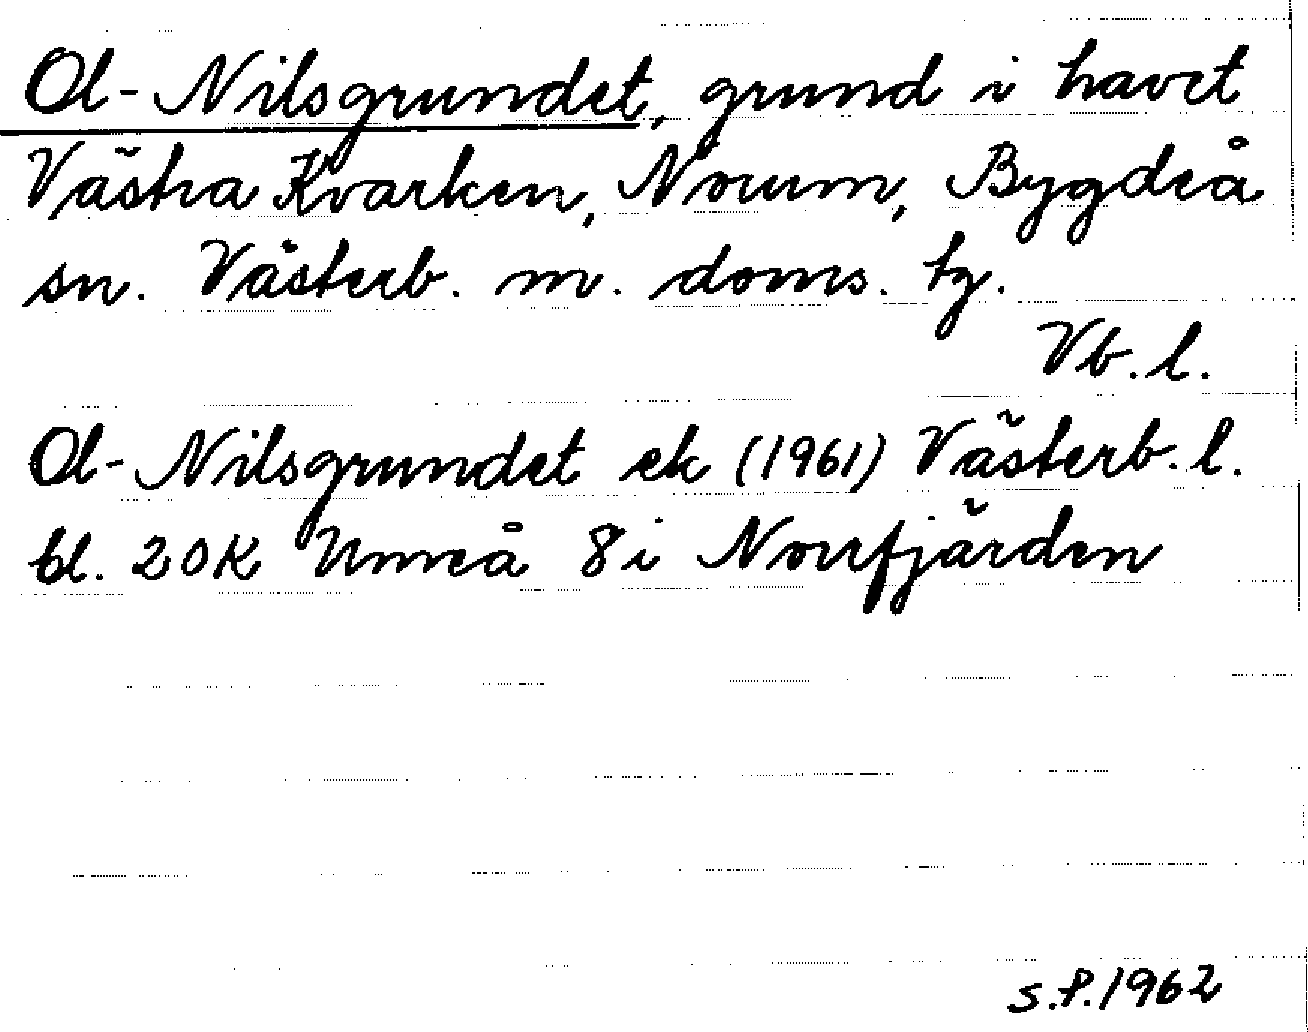 Ol-Nilsgrundet, grund i havet
Västra Kvarken, Norum, Bygdeå
sn. Västerb. m. doms. tg.
Vb. l.
Ol-Nilsgrundet ek (1961) Västerb. l.
bl. 20K Umeå 8i Norrfjärden
S.P. 1962